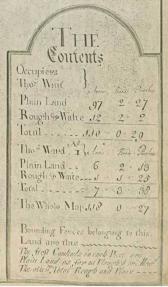 THE
Contents
Occupiers
Thos. Wint Acres Roods Perches
Plain Land 97 2 27
Rough & Waste 12 2 2
Total 110 0 29
Thos. Wand
Plain Land 6 2 13
Rough & Waste
Total 7 3 38
The Whole Map 118 0 27
Bounding Fences belonging to this
Land are thus
The first Contents in each Piece are
Plain Land
The other, Total Rough and Plain